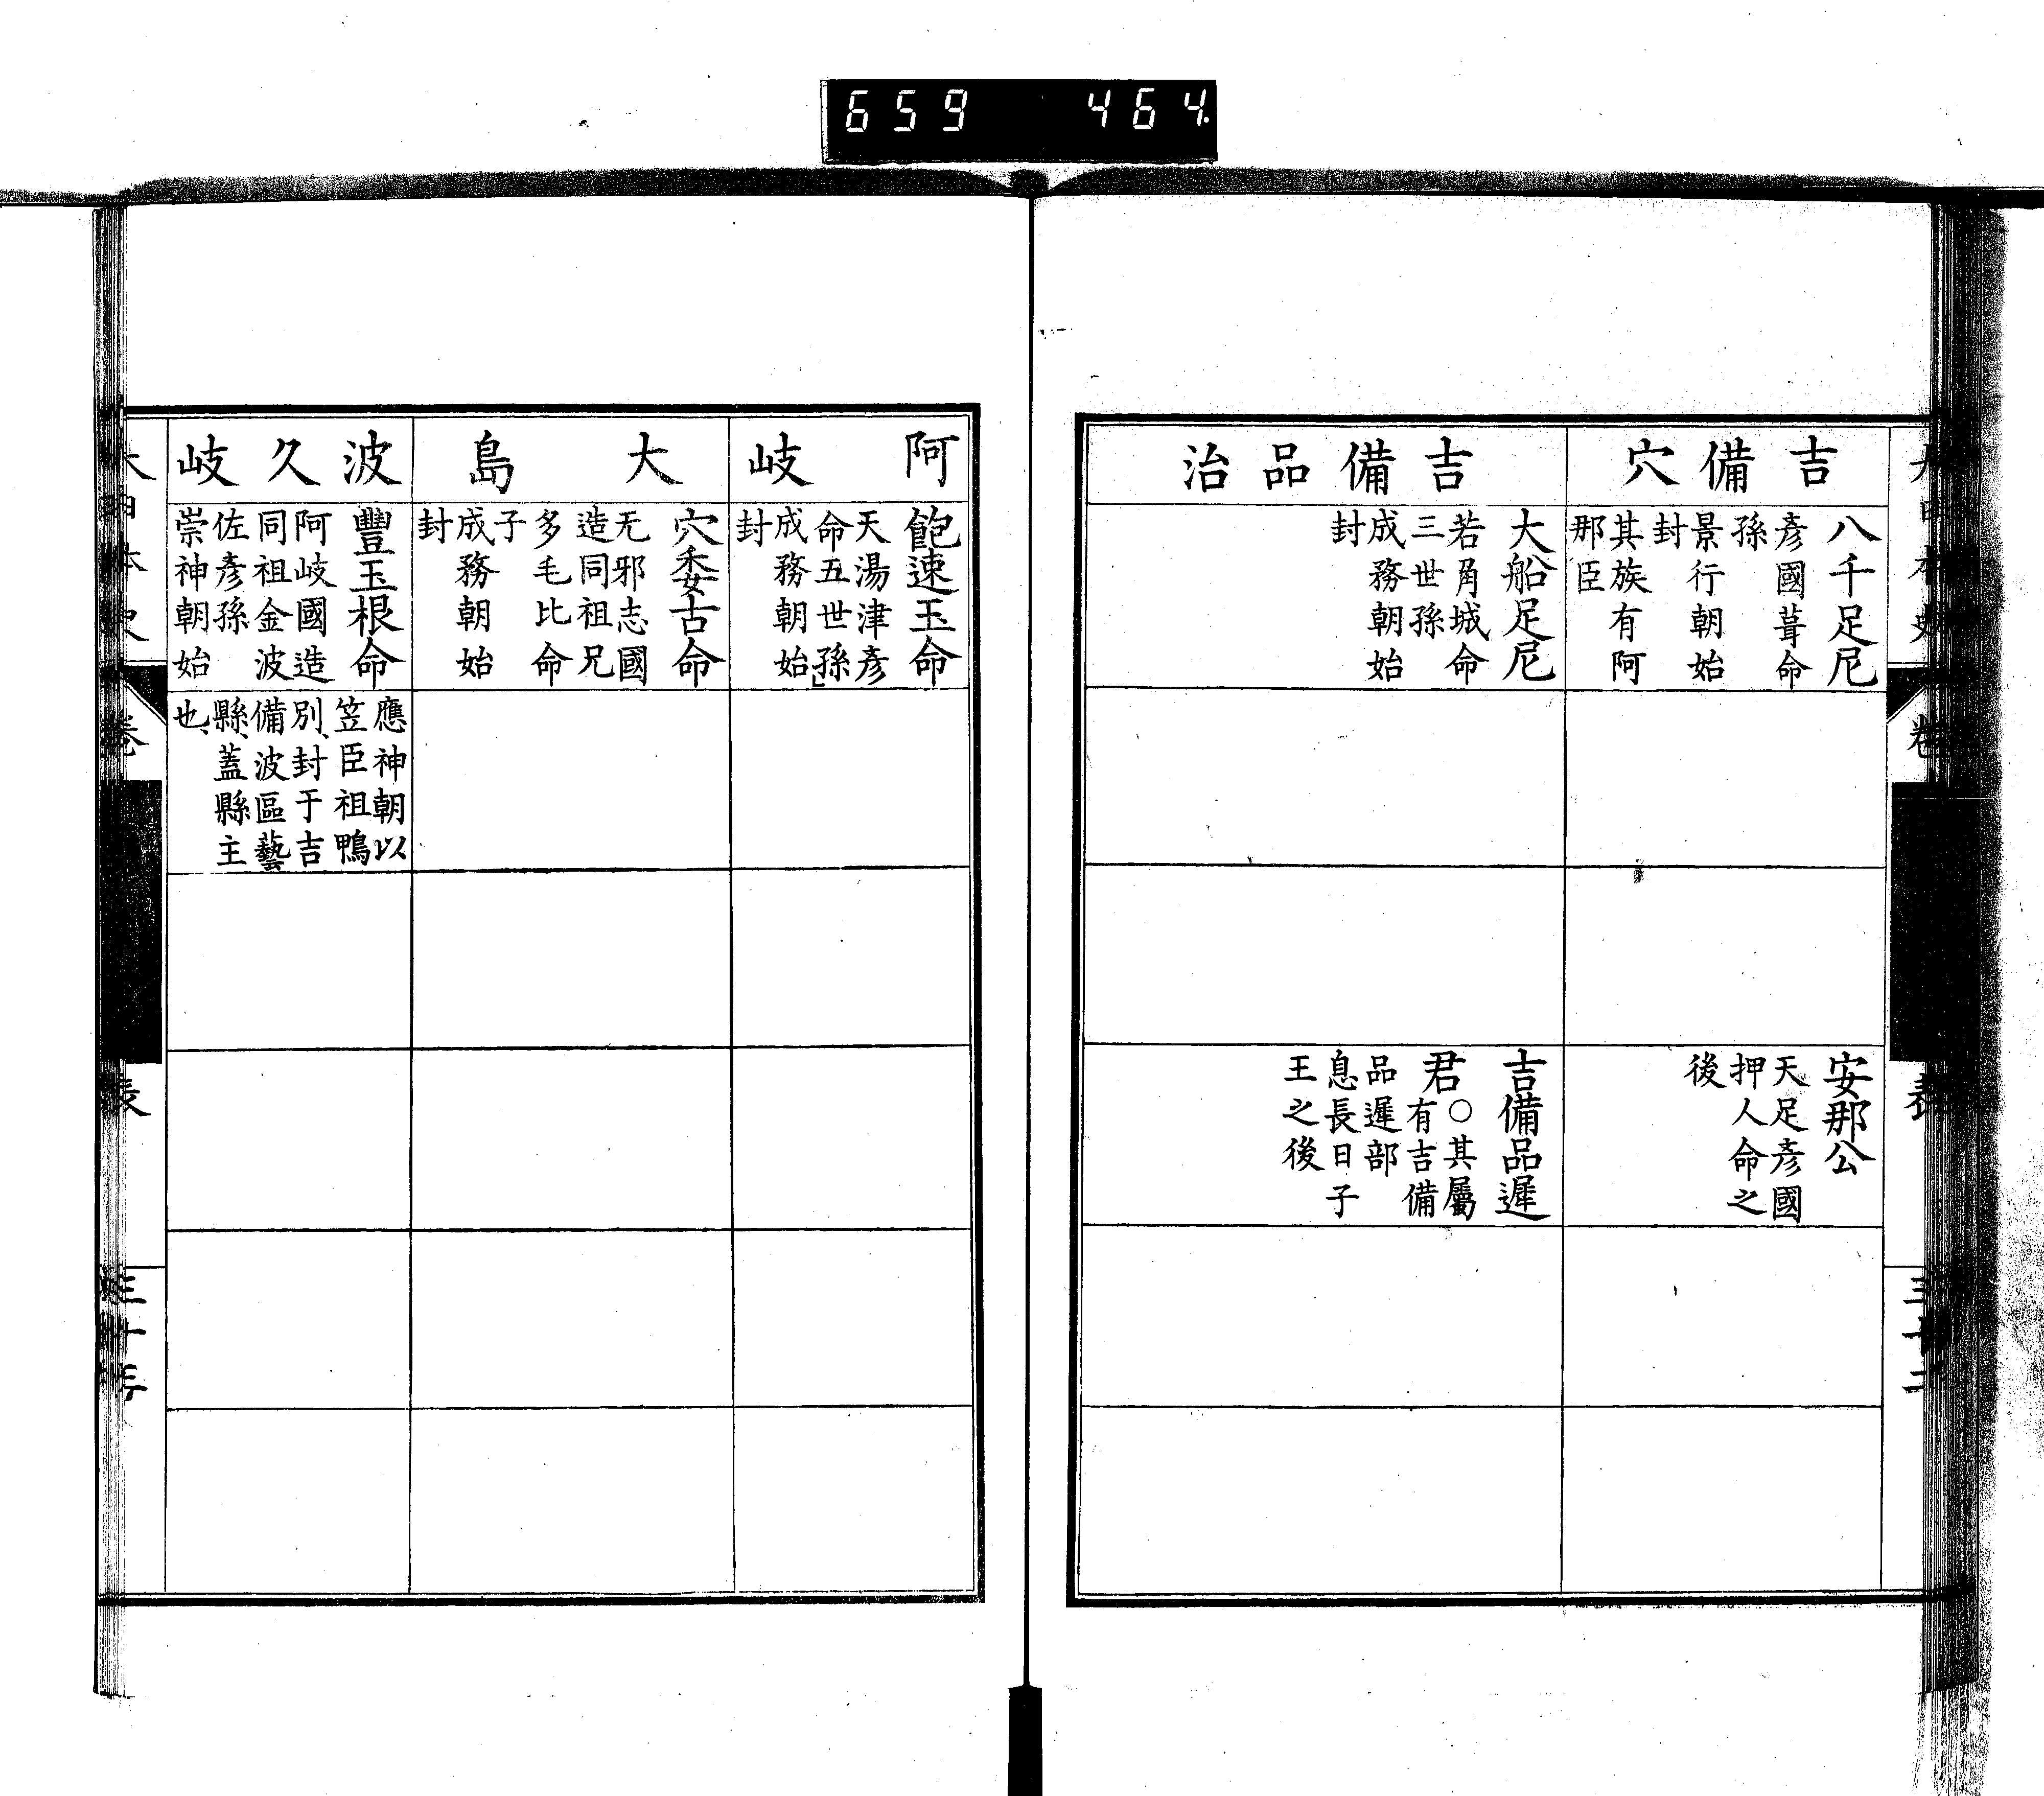 659 464.
吉備穴
八千足尼
彥國葺命
孫
景行朝始
封
其族有阿
那臣
安那公
天足彥國
押人命之
後
吉備品治
大船足尼
若角城命
三世孫
成務朝始
封
吉備品遲
君○其屬
有吉備
品遲部
息長日子
王之後
阿岐
飽速玉命
天湯津彥
命五世孫」
成務朝始
封
大島
穴委古命
无邪志國
造同祖兄
多毛比命
子
成務朝始
封
波久岐
豐玉根命
阿岐國造
同祖金波
佐彥孫
崇神朝始
應神朝以
笠臣祖鴨
別、封于吉
備波區藝
縣、蓋縣主
也、